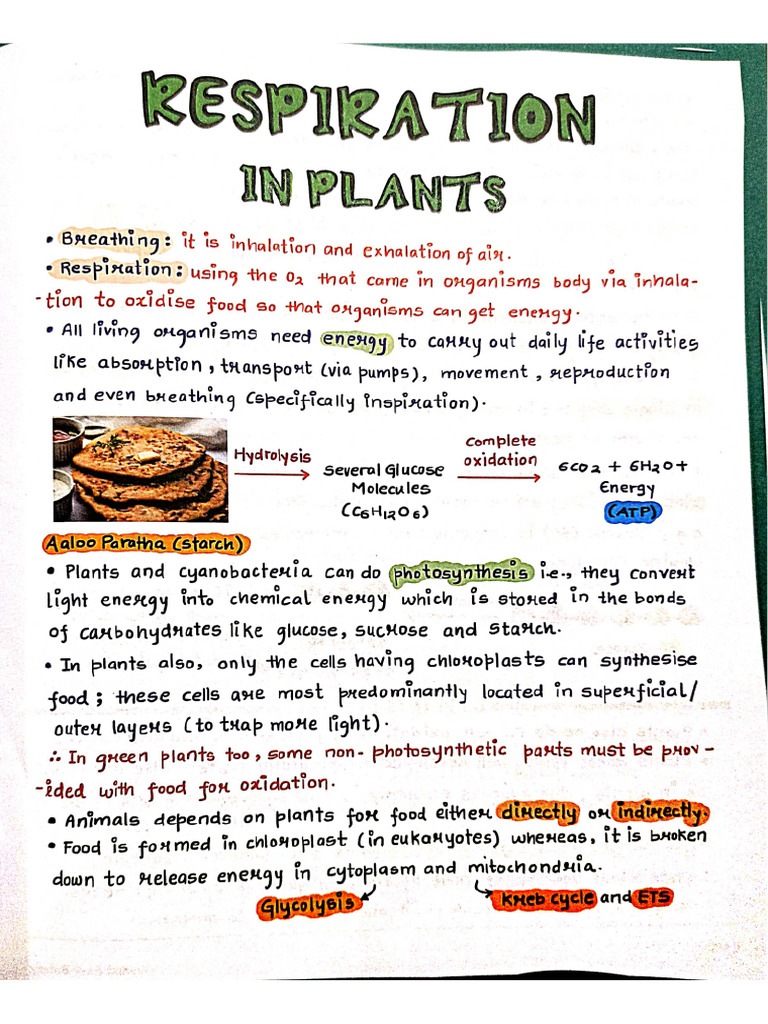 RESPIRATION
IN PLANTS
• Breathing: it is inhalation and exhalation of air.
• Respiration: using the O2 that came in organisms body via inhala-
-tion to oxidise food so that organisms can get energy.
• All living organisms need energy to carry out daily life activities
like absorption, transport (via pumps), movement, reproduction
and even breathing (specifically inspiration).
Hydrolysis
Several Glucose
Molecules
(C6H12O6)
Complete
oxidation
6CO2 + 6H2O+
Energy
(ATP)
Aaloo Paratha (starch)
• Plants and cyanobacteria can do photosynthesis i.e., they convert
light energy into chemical energy which is stored in the bonds
of carbohydrates like glucose, sucrose and starch.
• In plants also, only the cells having chloroplasts can synthesise
food; these cells are most predominantly located in superficial/
outer layers (to trap more light).
∴ In green plants too, some non-photosynthetic parts must be prov-
-ided with food for oxidation.
• Animals depends on plants for food either directly or indirectly.
• Food is formed in chloroplast (in eukaryotes) whereas, it is broken
down to release energy in cytoplasm and mitochondria.
Glycolysis
Kreb cycle and ETS